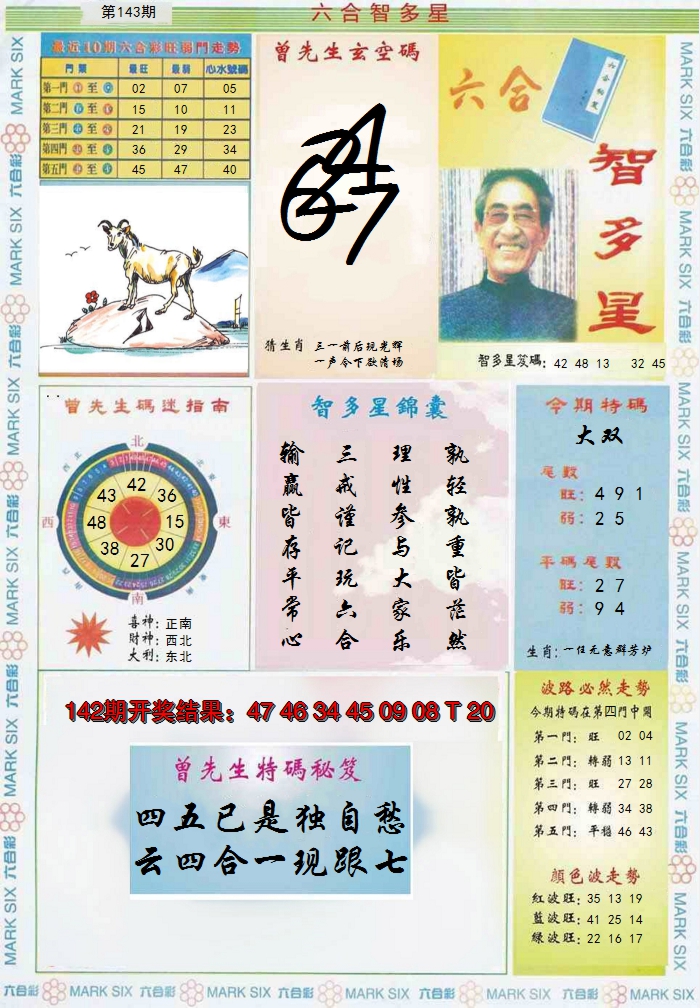 第143期
六合智多星
最近10期六合彩旺弱門走勢
門類 最旺 最弱 心水號碼
第一門 至 02 07 05
第二門 至 15 10 11
第三門 至 21 19 23
第四門 至 36 29 34
第五門 至 45 47 40
曾先生玄空碼
猜生肖 三一前后玩光辉
一声令下欲清场
六合
智多星
智多星笈碼: 42 48 13 32 45
曾先生碼迷指南
北
西
東
南
42
43 36
48 15
38 30
27
喜神: 正南
財神: 西北
大利: 东北
智多星錦囊
孰轻孰重皆茫然
理性参与大家乐
三戒谨记玩六合
输赢皆存平常心
今期特碼
大双
尾數
旺: 4 9 1
弱: 2 5
平碼尾數
旺: 2 7
弱: 9 4
生肖: 一任元意群芳炉
142期开奖结果：47 46 34 45 09 08 T 20
曾先生特碼秘笈
四五已是独自愁
云四合一现跟七
波路必然走势
今期特碼在第四門中開
第一門: 旺 02 04
第二門: 轉弱 13 11
第三門: 旺 27 28
第四門: 轉弱 34 38
第五門: 平穩 46 43
顏色波走勢
紅波旺: 35 13 19
藍波旺: 41 25 14
綠波旺: 22 16 17
六合彩 MARK SIX